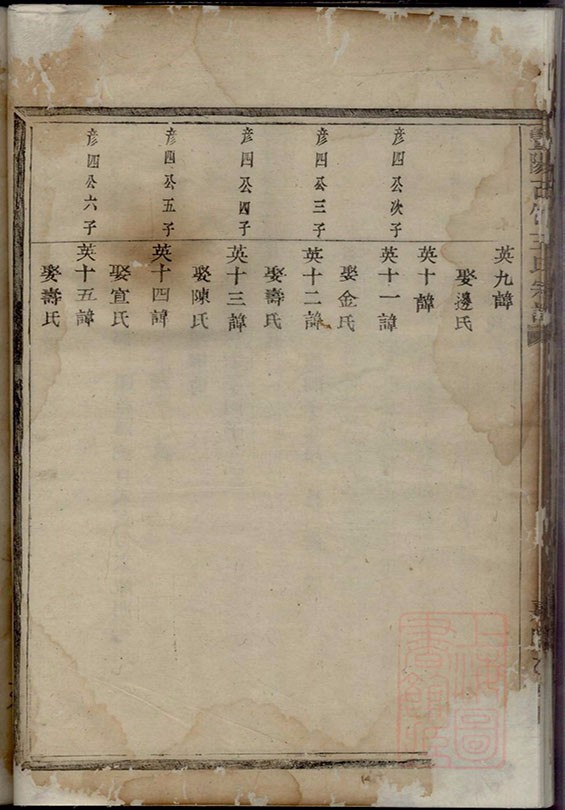 英九諱
娶邊氏
英十諱
彦四公次子
英十一諱
娶金氏
彦四公三子
英十二諱
娶壽氏
彦四公四子
英十三諱
娶陳氏
彦四公五子
英十四諱
娶宣氏
彦四公六子
英十五諱
娶壽氏
上海圖書館藏